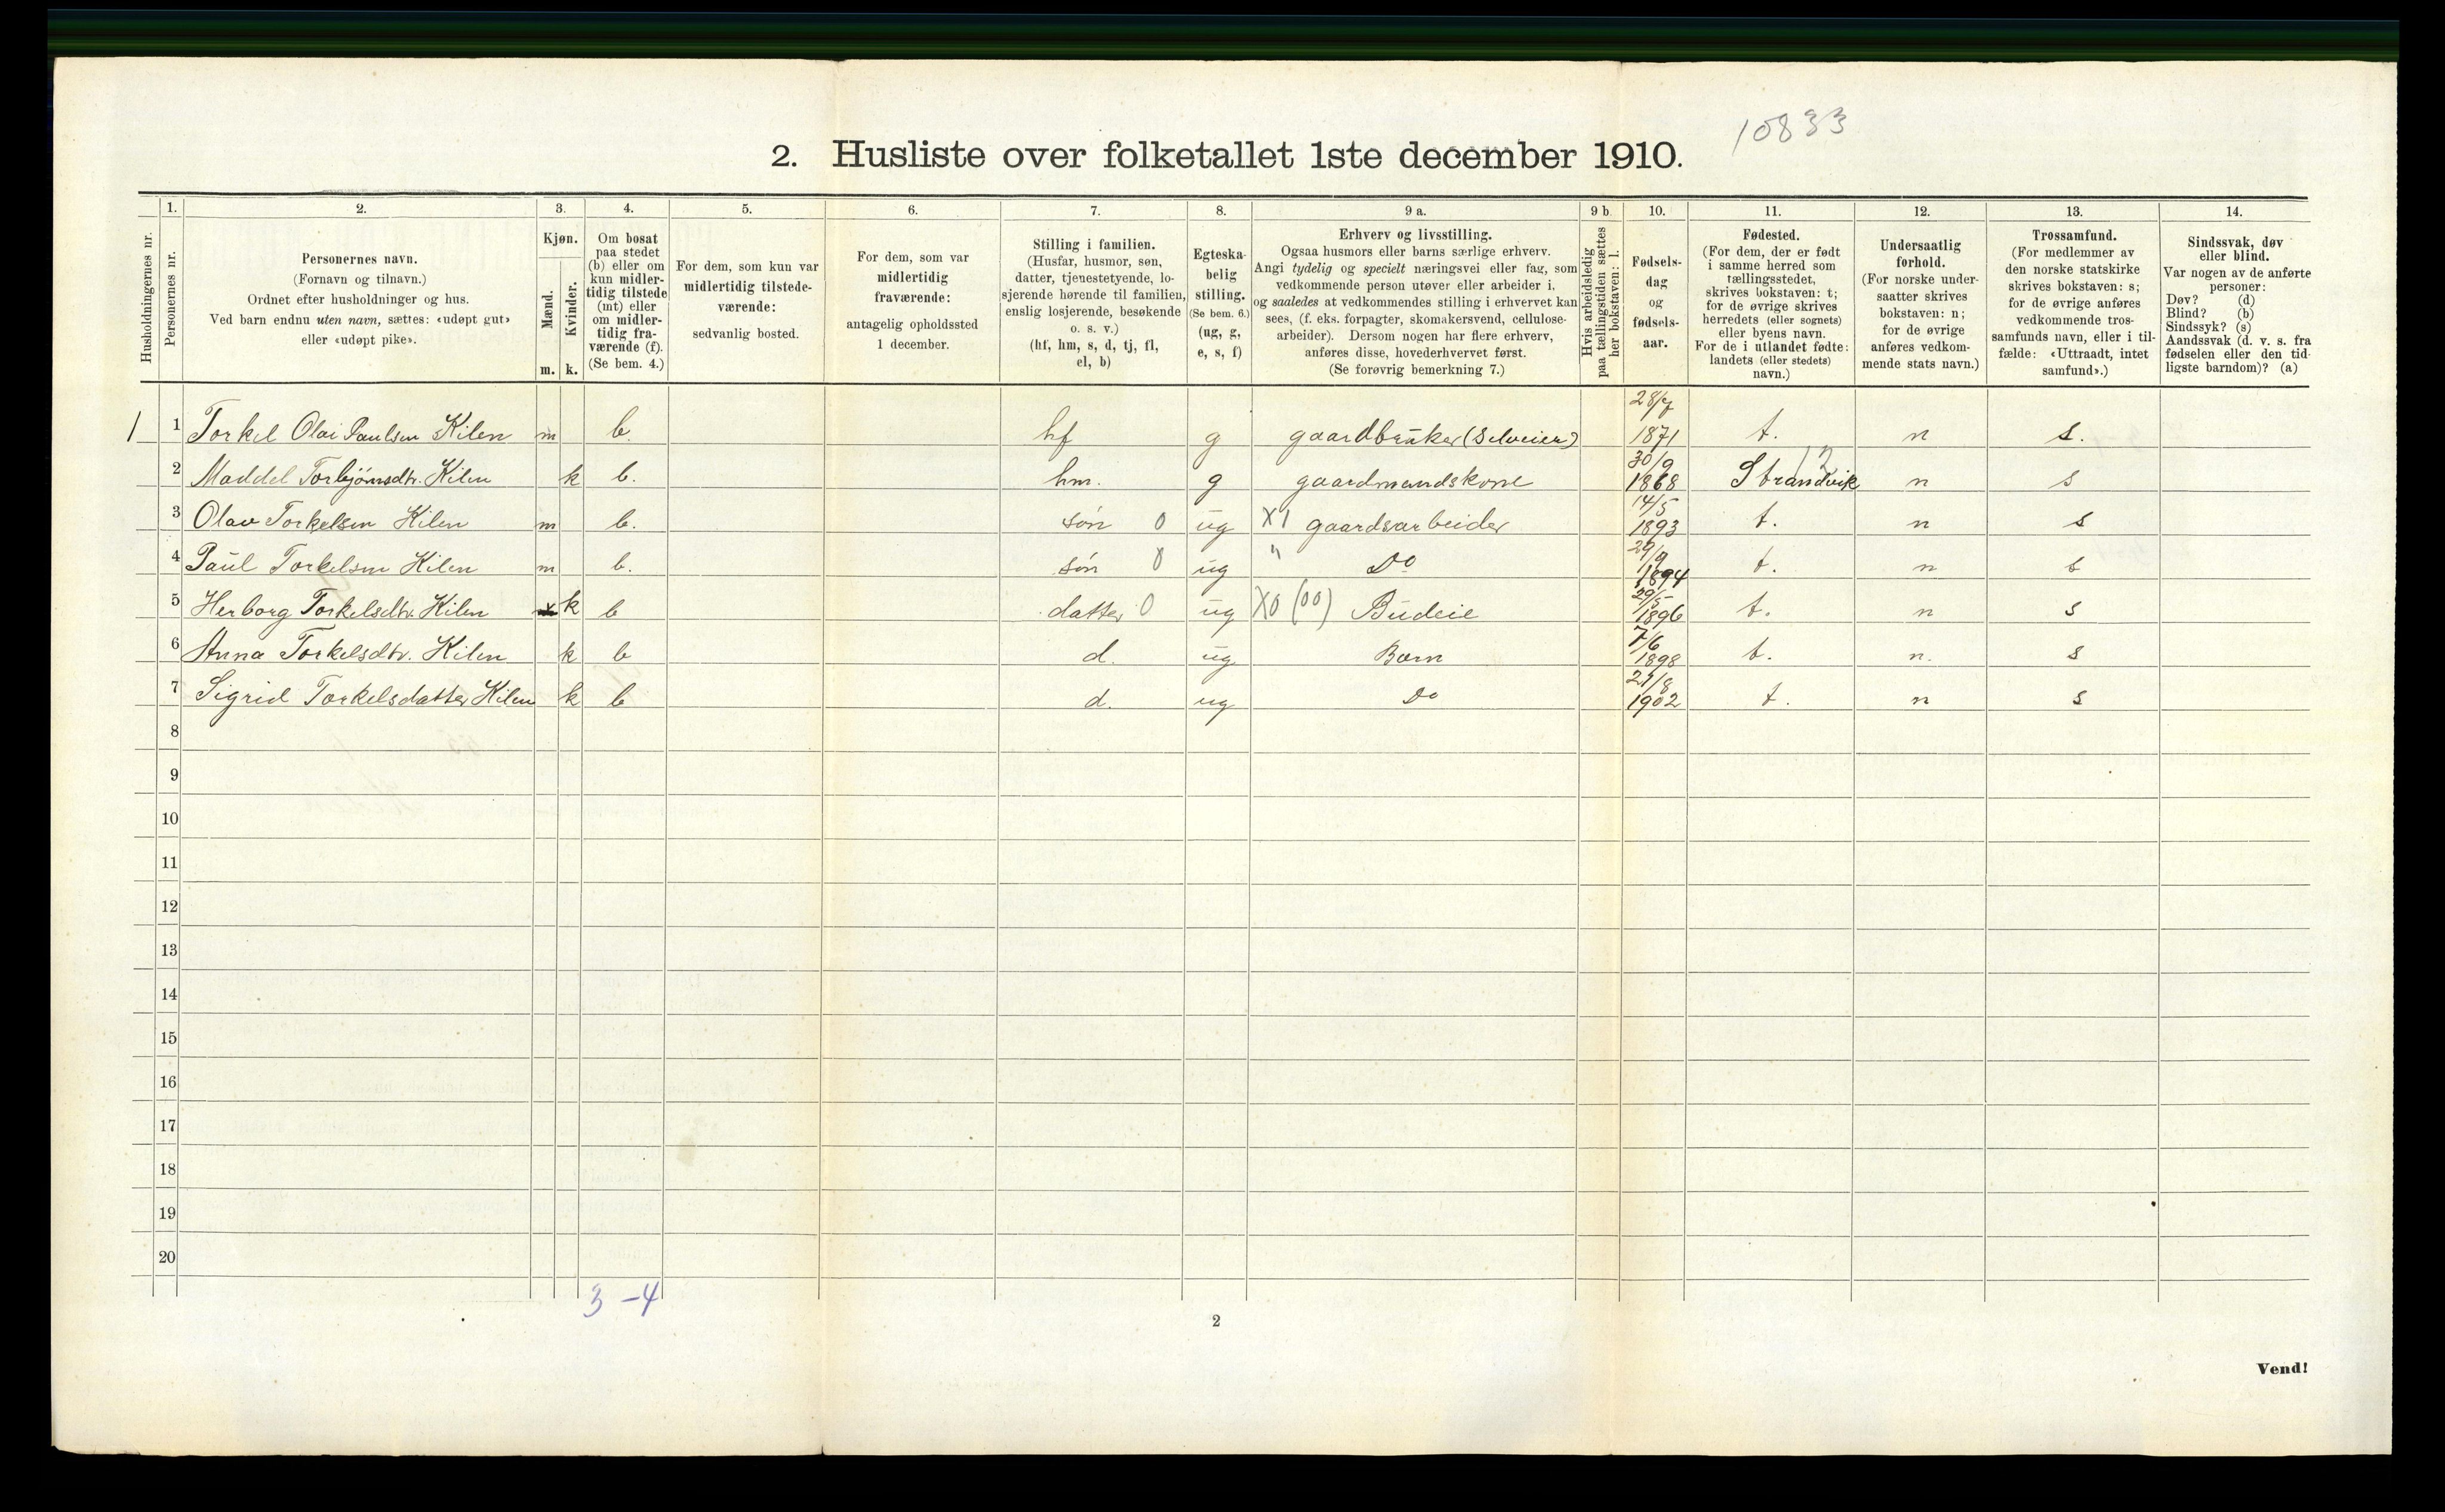 10833
2. Husliste over folketallet 1ste december 1910.
Husholdningernes nr.
1.
Personernes nr.
2.
Personernes navn.
(Fornavn og tilnavn.)
Ordnet efter husholdninger og hus.
Ved barn endnu uten navn, sættes: «udøpt gut»
eller «udøpt pike».
3.
Kjøn.
Mænd.
Kvinder.
m. k.
4.
Om bosat
paa stedet
(b) eller om
kun midler-
tidig tilstede
(mt) eller
om midler-
tidig fra-
værende (f).
(Se bem. 4.)
5.
For dem, som kun var
midlertidig tilstede-
værende:
sedvanlig bosted.
6.
For dem, som var
midlertidig
fraværende:
antagelig opholdssted
1 december.
7.
Stilling i familien.
(Husfar, husmor, søn,
datter, tjenestetyende, lo-
sjerende hørende til familien,
enslig losjerende, besøkende
o. s. v.)
(hf, hm, s, d, tj, fl,
el, b)
8.
Egteska-
belig
stilling.
(Se bem. 6.)
(ug, g,
e, s, f)
9 a.
Erhverv og livsstilling.
Ogsaa husmors eller barns særlige erhverv.
Angi tydelig og specielt næringsvei eller fag, som
vedkommende person utøver eller arbeider i,
og saaledes at vedkommendes stilling i erhvervet kan
sees, (f. eks. forpagter, skomakersvend, cellulose-
arbeider). Dersom nogen har flere erhverv,
anføres disse, hovederhvervet først.
(Se forøvrig bemerkning 7.)
9 b.
Hvis arbeidsledig
paa tællingstiden sættes
her bokstaven: l.
10.
Fødsels-
dag
og
fødsels-
aar.
11.
Fødested.
(For dem, der er født
i samme herred som
tællingsstedet,
skrives bokstaven: t;
for de øvrige skrives
herredets (eller sognets)
eller byens navn.
For de i utlandet fødte:
landets (eller stedets)
navn.)
12.
Undersaatlig
forhold.
(For norske under-
saatter skrives
bokstaven: n;
for de øvrige
anføres vedkom-
mende stats navn.)
13.
Trossamfund.
(For medlemmer av
den norske statskirke
skrives bokstaven: s;
for de øvrige anføres
vedkommende tros-
samfunds navn, eller i til-
fælde: «Uttraadt, intet
samfund».)
14.
Sindssvak, døv
eller blind.
Var nogen av de anførte
personer:
Døv? (d)
Blind? (b)
Sindssyk? (s)
Aandssvak (d. v. s. fra
fødselen eller den tid-
ligste barndom)? (a)
1 1 Torkel Olai Paulsen Kilen m b. hf g gaardbruker (Selveier) 28/7 1871 t. n s.
2 Maddel Torbjørnsdtr. Kilen k b. hm. g gaardmandskone 30/9 1868 Strandvik n s
3 Olav Torkelsen Kilen m b. søn 0 ug X1 gaardsarbeider 14/5 1893 t. n s
4 Paul Torkelsen Kilen m b. søn 0 ug " Do 29/9 1894 t. n s
5 Herborg Torkelsdtr. Kilen k b datter 0 ug X0 (00) Budeie 29/5 1896 t. n s
6 Anna Torkelsdtr. Kilen k b d. ug Barn 7/6 1898 t. n. s
7 Sigrid Torkelsdatter Kilen k b d. ug Do 27/8 1902 t. n s
8
9
10
11
12
13
14
15
16
17
18
19
20
3 - 4
2
Vend!